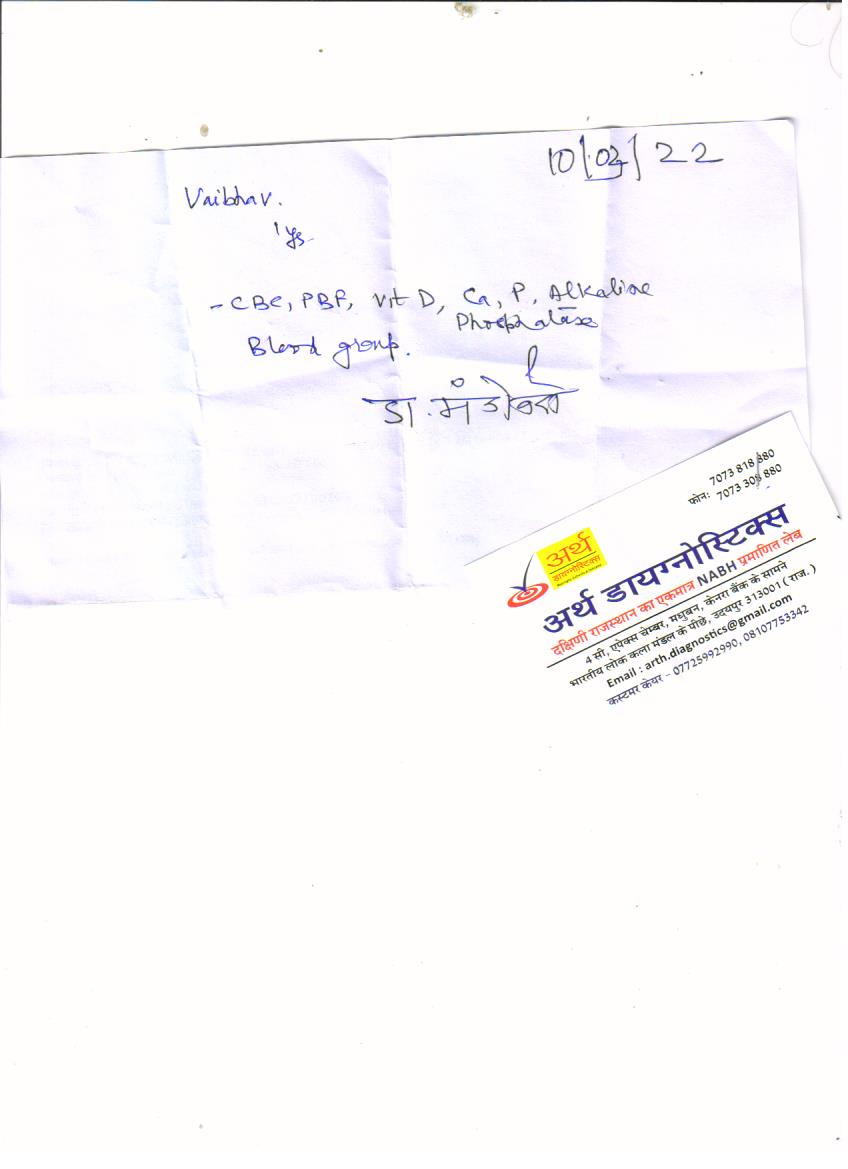 10/02/22
Vaibhav.
1 ys
- CBC, PBF, Vit D, Ca, P, Alkaline
Phosphatase
Blood group.
डा.
7073 818 880
फोन: 7073 308 880
अर्थ
डायग्नोस्टिक्स
अर्थ डायग्नोस्टिक्स
दक्षिणी राजस्थान का एकमात्र NABH प्रमाणित लेब
4 सी, एपेक्स चेम्बर, मधुबन, केनरा बैंक के सामने
भारतीय लोक कला मंडल के पीछे, उदयपुर 313001 ( राज. )
Email : arth.diagnostics@gmail.com
कस्टमर केयर – 07725992990, 08107753342